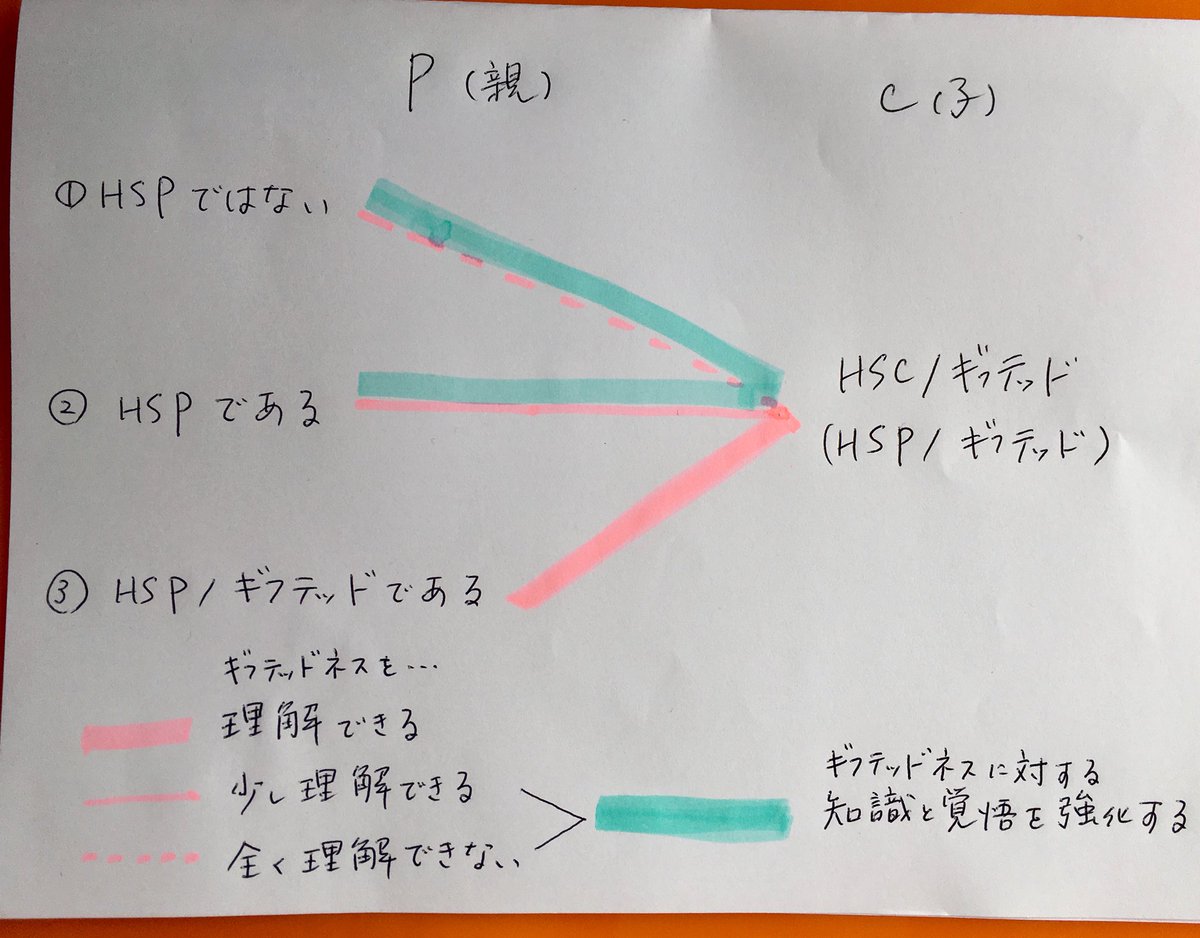 P (親)
C (子)
① HSPではない
② HSPである
HSC/ギフテッド
(HSP/ギフテッド)
③ HSP/ギフテッドである
ギフテッドネスを…
理解できる
少し理解できる
全く理解できない
ギフテッドネスに対する
知識と覚悟を強化する